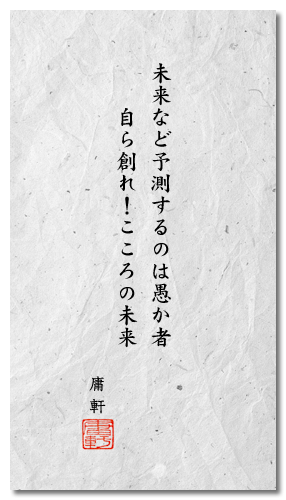 未来など予測するのは愚か者
自ら創れ！こころの未来
庸軒